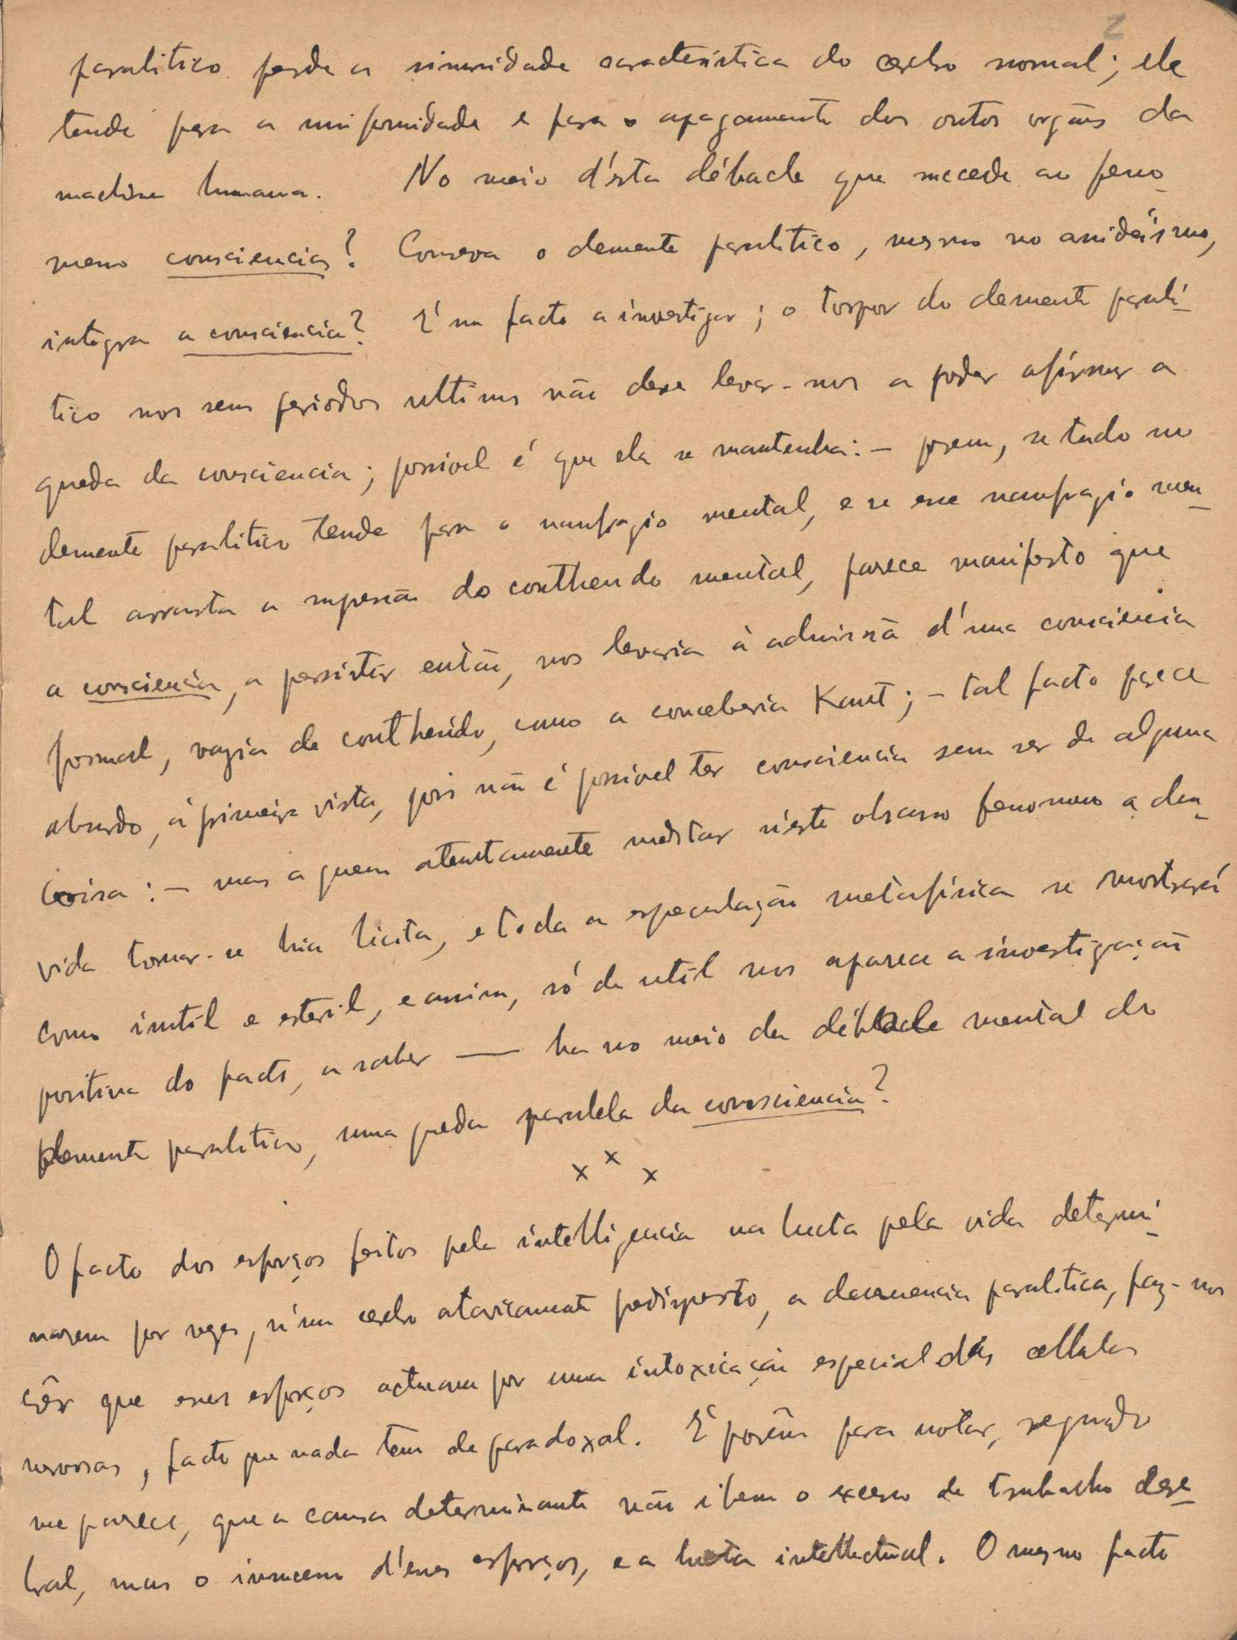 2
paralitico perde a sinuosidade caracteristica do cerebro normal; ele
tende para a uniformidade e para o apagamento dos outros orgãos da
machina humana. No meio d'ésta débacle que succede ao feno-
meno consciencia? Conserva o demente paralitico, mesmo no anideísmo,
integra a consciencia? É um facto a investigar; o torpor do demente paralí-
tico nos seus periodos ultimos não deve levar-nos a poder afirmar a
queda da consciencia; possivel é que ela se mantenha: — porem, se tudo no
demente paralitico tende para o naufragio mental, e se esse naufragio men-
tal arrasta a supressão do conthendo mental, parece manifesto que
a consciencia, a persistir então, nos levaria á admissão d'uma consciencia
formal, vazia de contheúdo, como a conceberia Kant; — tal facto parece
absurdo, á primeira vista, pois não é possivel ter consciencia sem ser de alguma
coisa: — mas a quem atentamente meditar n'este obscuro fenomeno a du-
vida tornar-se hia licita, e toda a especulação metafísica se mostrará
como inutil e esteril, e assim, só de util nos aparece a investigação
positiva do facto, a saber — ha no meio da débacle mental do
demente paralitico, uma queda paralela da consciencia?
x x x
O facto dos esforços feitos pela intelligencia na lucta pela vida determi-
narem por vezes, n'um cerebro atavicamente predisposto, a demencia paralitica, faz-nos
crêr que esses esforços actuam por uma intoxicação especial das cellulas
nervosas, facto que nada tem de paradoxal. É porêm para notar, segundo
me parece, que a causa determinante não é bem o excesso de trabalho cere-
bral, mas o insucesso d'esses esforços, e a lucta intellectual. O mesmo facto